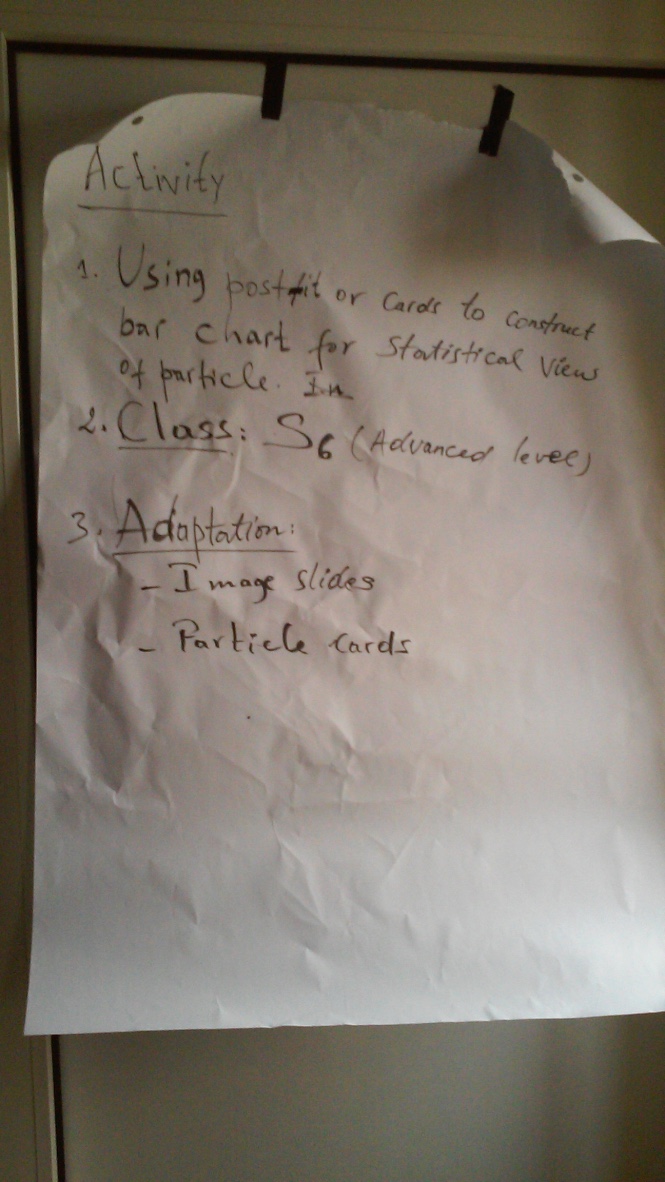 Activity
1. Using postfit or cards to construct
bar chart for Statistical View
of particle. In
2. Class: S6 (Advanced level)
3. Adaptation:
- Image slides
- Particle cards